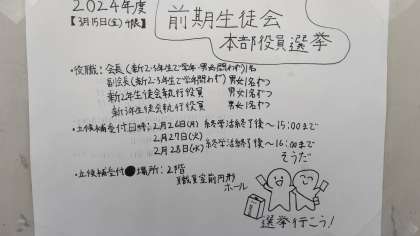 2024年度
【3月15日(金)午限】
前期生徒会
本部役員選挙
・役職:会長(新2・3年生で学年・男女問わず)1名
副会長(新2・3年生で学年問わず) 男女1名ずつ
新2年生生徒会執行役員 男女1名ずつ
新3年生生徒会執行役員 男女1名ずつ
・立候補受付日時:2月26日(月) 終学活終了後〜15:00まで
2月27日(火)
2月28日(水) 終学活終了後〜16:00まで
・立候補受付場所:2階
職員室前円形
ホール
そうだ
選挙行こう!